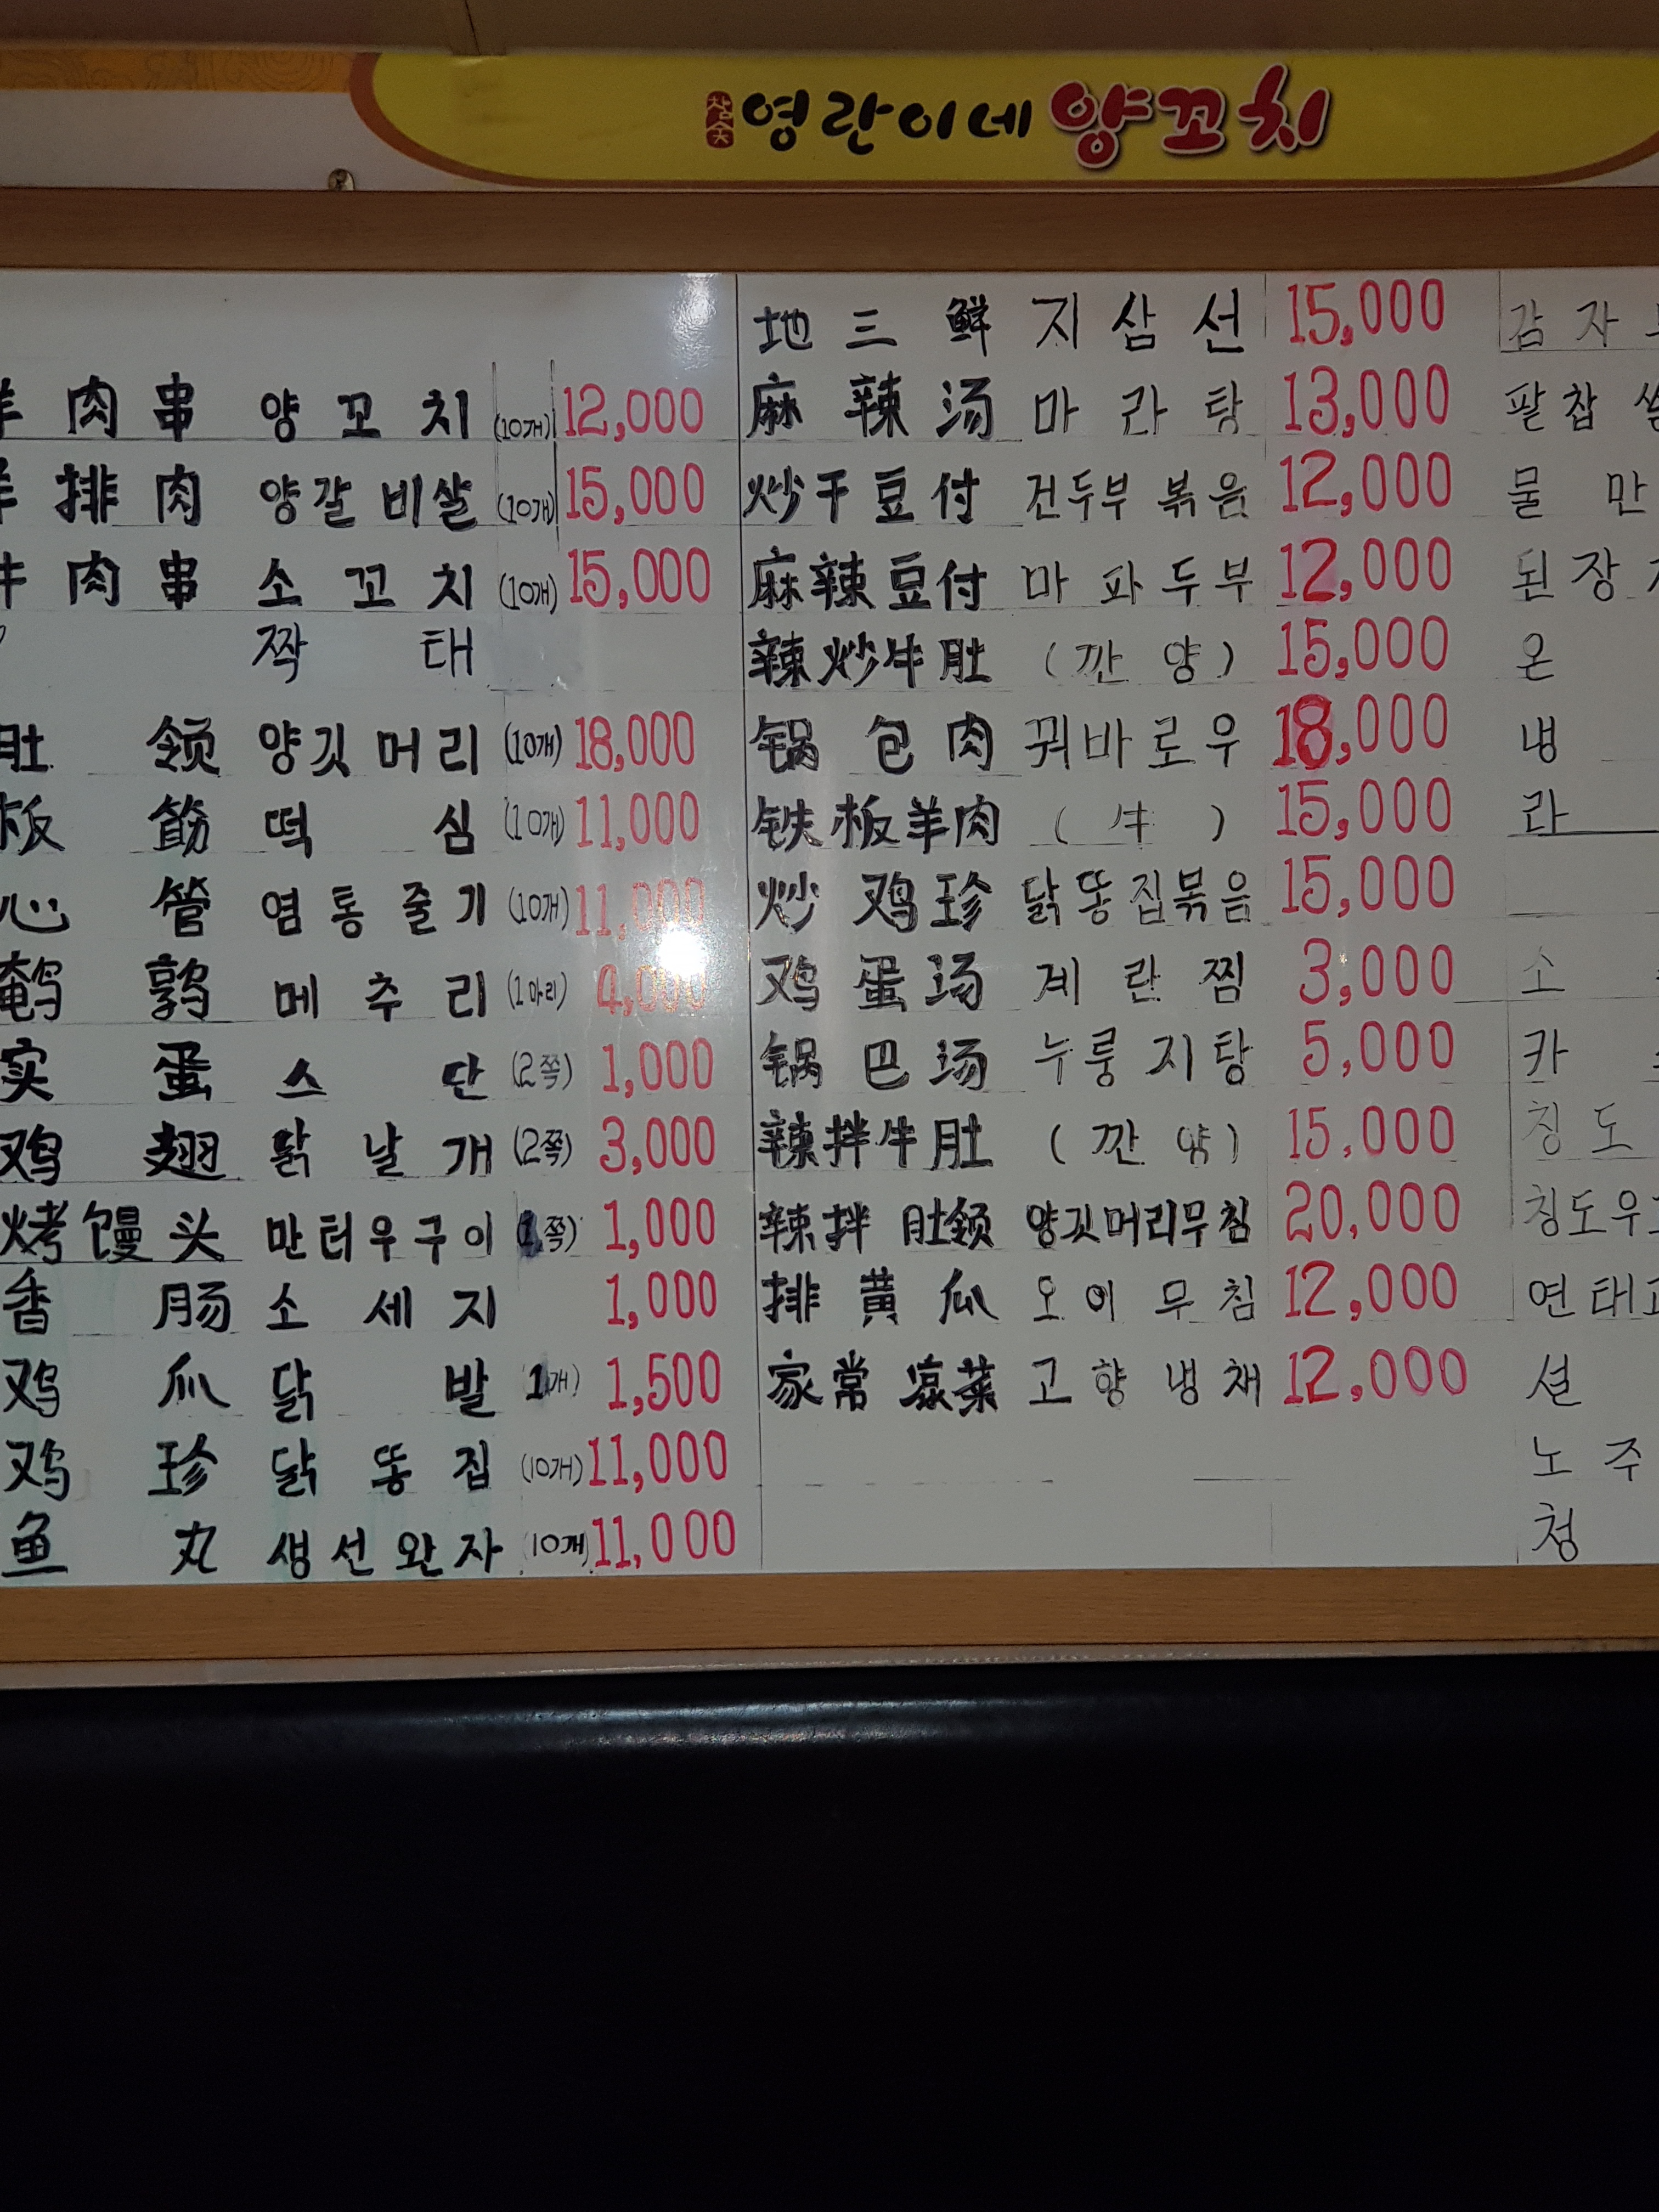 참숯 영란이네 양꼬치
羊肉串 양꼬치 (10개) 12,000
羊排肉 양갈비살 (10개) 15,000
牛肉串 소꼬치 (10개) 15,000
짝태
肚领 양깃머리 (10개) 18,000
板筋 떡심 (10개) 11,000
心管 염통줄기 (10개) 11,000
鹌鹑 메추리 (1마리) 4,000
实蛋 스단 (2쪽) 1,000
鸡翅 닭날개 (2쪽) 3,000
烤馒头 만터우구이 (1쪽) 1,000
香肠 소세지 1,000
鸡爪 닭발 1개) 1,500
鸡珍 닭똥집 (10개) 11,000
鱼丸 생선완자 (10개) 11,000
地三鲜 지삼선 15,000
麻辣汤 마라탕 13,000
炒干豆付 건두부볶음 12,000
麻辣豆付 마파두부 12,000
辣炒牛肚 (깐양) 15,000
锅包肉 꿔바로우 18,000
铁板羊肉 (牛) 15,000
炒鸡珍 닭똥집볶음 15,000
鸡蛋汤 계란찜 3,000
锅巴汤 누룽지탕 5,000
辣拌牛肚 (깐양) 15,000
辣拌肚领 양깃머리무침 20,000
排黄瓜 오이무침 12,000
家常凉菜 고향냉채 12,000
감자
팥찹쌀
물만
된장
온
냉
라
소
카
칭도
칭도우
연태고
설
노주
청